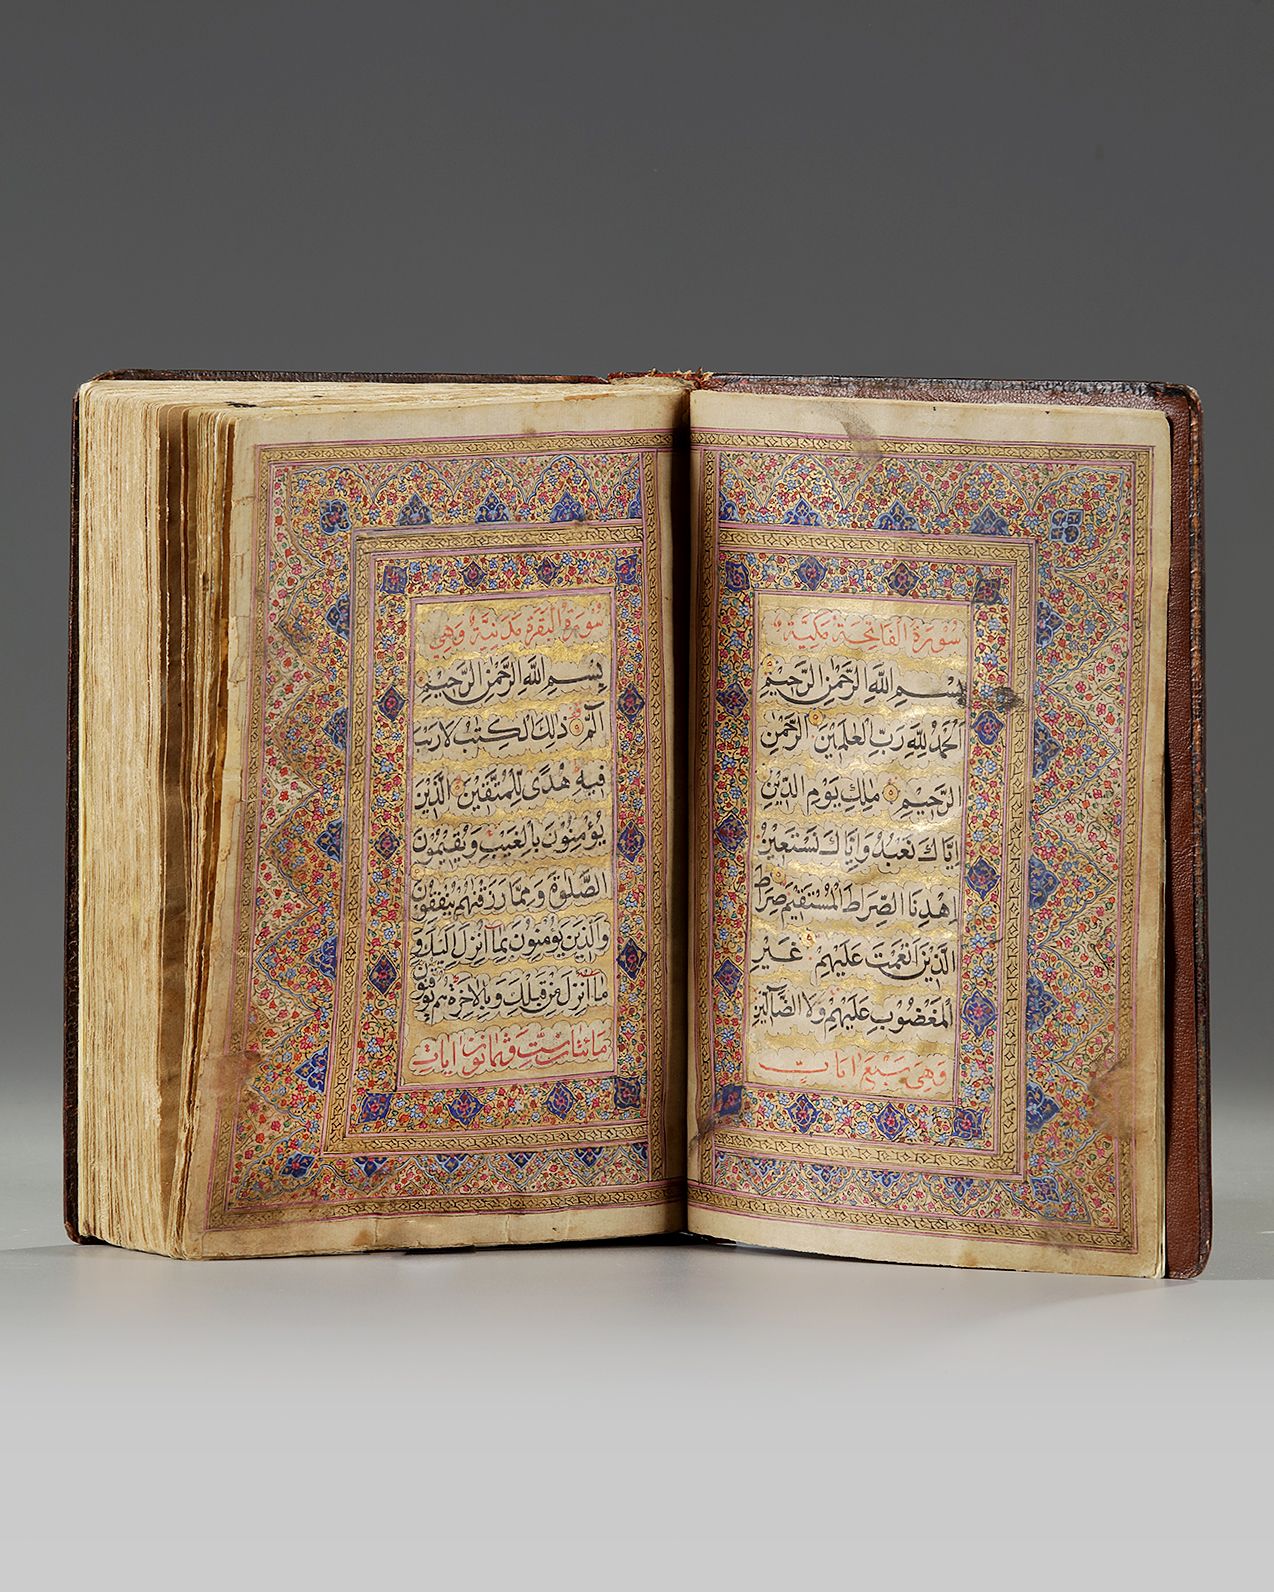 سُورَةُ الفَاتِحَةِ مَكِّيَّةٌ
بِسْمِ اللَّهِ الرَّحْمٰنِ الرَّحِيْمِ
اَلْحَمْدُ لِلّٰهِ رَبِّ الْعٰلَمِيْنَ الرَّحْمٰنِ
الرَّحِيْمِ مٰلِكِ يَوْمِ الدِّيْنِ
اِيَّاكَ نَعْبُدُ وَاِيَّاكَ نَسْتَعِيْنُ
اِهْدِنَا الصِّرَاطَ الْمُسْتَقِيْمَ صِرَاطَ
الَّذِيْنَ اَنْعَمْتَ عَلَيْهِمْ غَيْرِ
الْمَغْضُوْبِ عَلَيْهِمْ وَلَا الضَّآلِّيْنَ
وَهِيَ سَبْعُ اٰيَاتٍ
سُوْرَةُ الْبَقَرَةِ مَدَنِيَّةٌ وَهِيَ
بِسْمِ اللَّهِ الرَّحْمٰنِ الرَّحِيْمِ
الٓمّٓ ذٰلِكَ الْكِتٰبُ لَا رَيْبَ
فِيْهِ هُدًى لِّلْمُتَّقِيْنَ الَّذِيْنَ
يُؤْمِنُوْنَ بِالْغَيْبِ وَيُقِيْمُوْنَ
الصَّلٰوةَ وَمِمَّا رَزَقْنٰهُمْ يُنْفِقُوْنَ
وَالَّذِيْنَ يُؤْمِنُوْنَ بِمَا اُنْزِلَ اِلَيْكَ وَ
مَا اُنْزِلَ مِنْ قَبْلِكَ وَبِالْاٰخِرَةِ هُمْ يُوْقِنُوْنَ
مَائَتَانِ وَسِتٌّ وَثَمَانُوْنَ اٰيَاتٍ